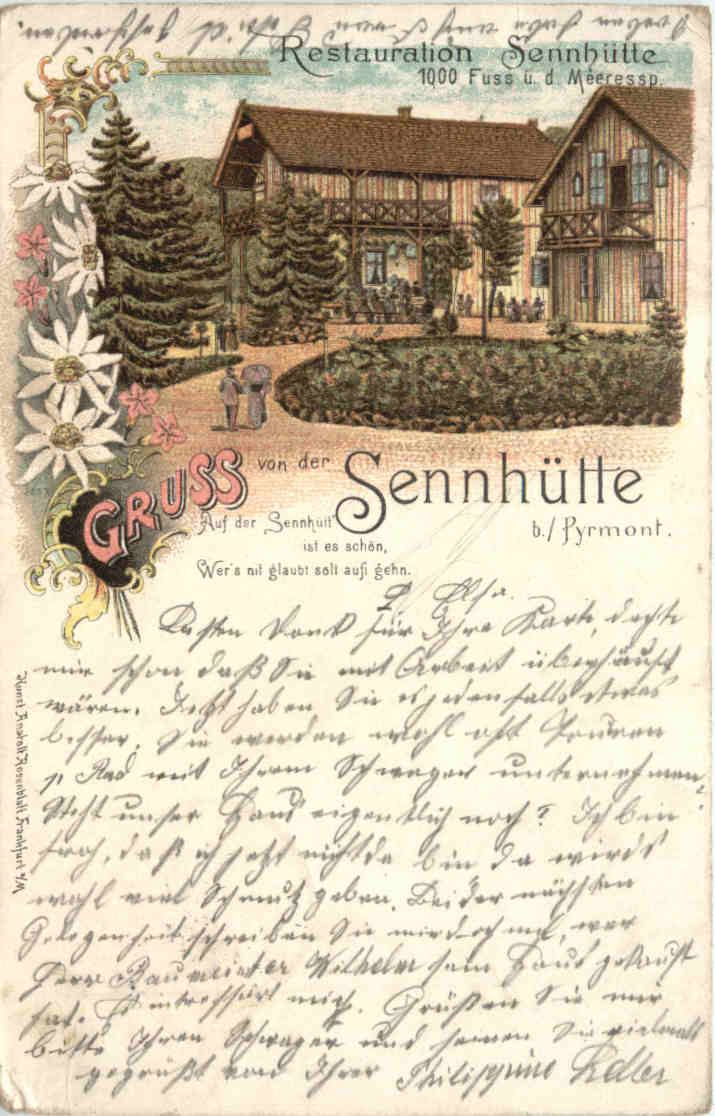 Restauration Sennhütte
1000 Fuss ü. d. Meeressp.
GRUSS von der Sennhütte
b./ Pyrmont.
Auf der Sennhütt'
ist es schön,
Wer's nit glaubt soll aufi gehn.
Kunst Anstalt Rosenblatt Frankfurt a/M
L. Elsa.
Besten Dank für Ihre Karte, dachte
mir schon daß Sie mit Arbeit überhäuft
wären. Jetzt haben Sie es jedenfalls etwas
besser, Sie werden wohl oft Touren
p. Rad mit Ihrem Schwager unternehmen.
Steht unser Haus eigentlich noch? Ich bin
froh, daß ich jetzt nicht da bin da wirds
wohl viel Schmutz geben. Bei der nächsten
Gelegenheit schreiben Sie mir doch mal, wer
Herr Baumeister Wilhelm sein Haus gekauft
hat. Es interessirt mich. Grüßen Sie mir
bitte Ihren Schwager und seien Sie vielmals
gegrüßt von Ihrer Philippine Keller